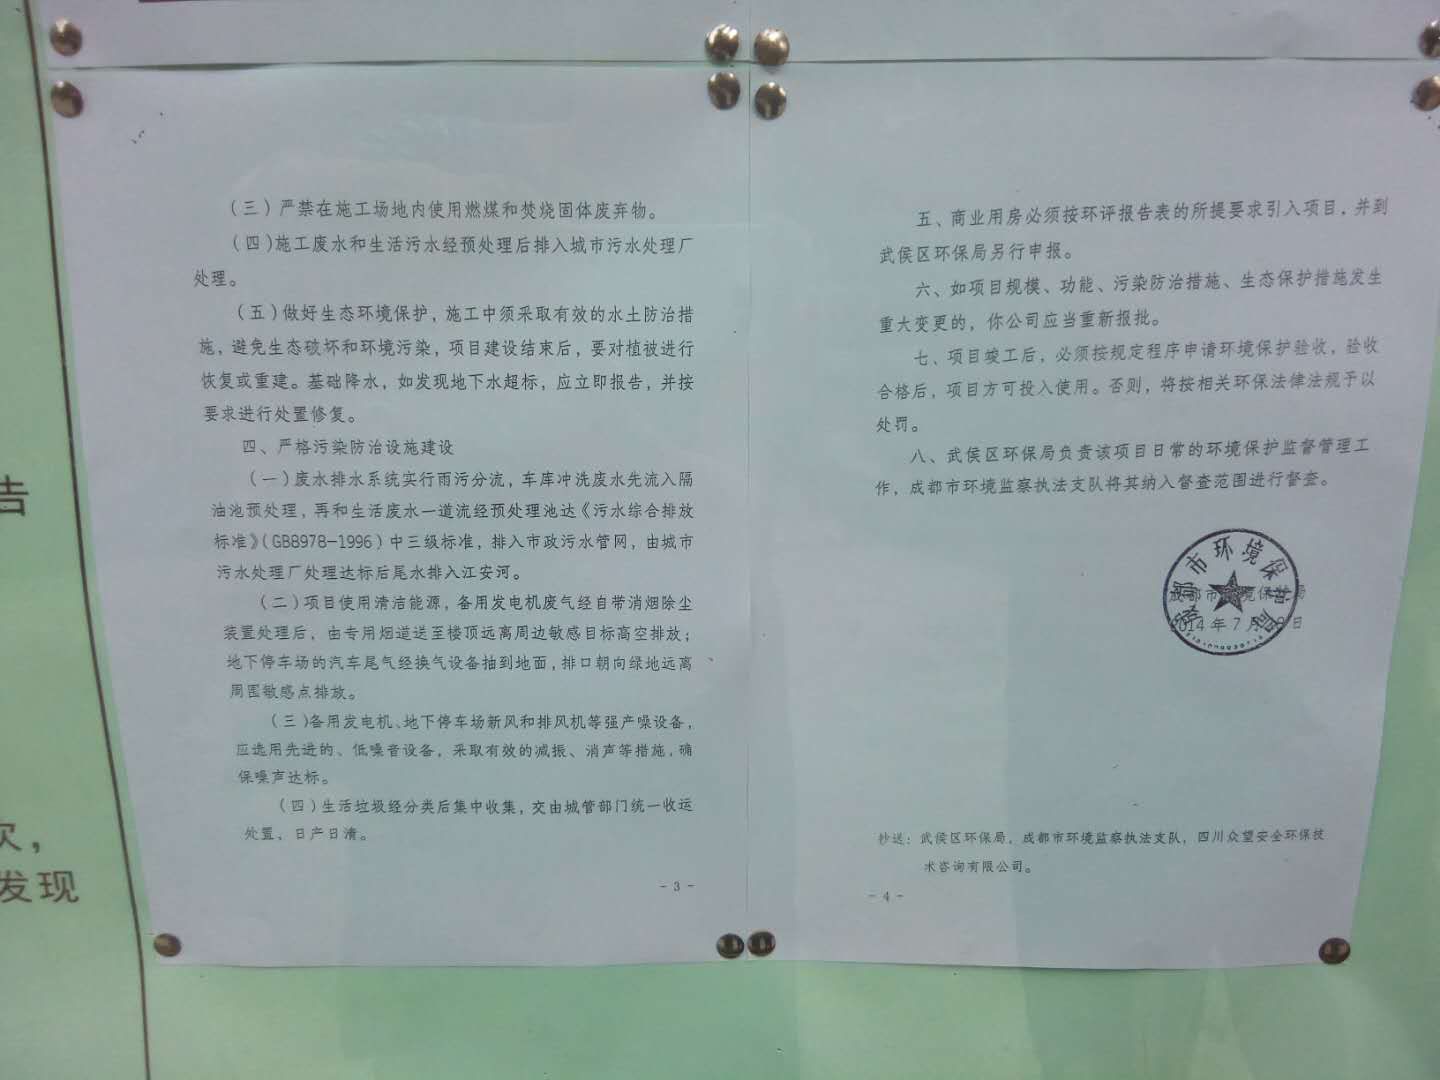 告
次，
发现
（三）严禁在施工场地内使用燃煤和焚烧固体废弃物。
（四）施工废水和生活污水经预处理后排入城市污水处理厂
处理。
（五）做好生态环境保护，施工中须采取有效的水土防治措
施，避免生态破坏和环境污染，项目建设结束后，要对植被进行
恢复或重建。基础降水，如发现地下水超标，应立即报告，并按
要求进行处置修复。
四、严格污染防治设施建设
（一）废水排水系统实行雨污分流，车库冲洗废水先流入隔
油池预处理，再和生活废水一道流经预处理池达《污水综合排放
标准》（GB8978-1996）中三级标准，排入市政污水管网，由城市
污水处理厂处理达标后尾水排入江安河。
（二）项目使用清洁能源，备用发电机废气经自带消烟除尘
装置处理后，由专用烟道送至楼顶远离周边敏感目标高空排放；
地下停车场的汽车尾气经换气设备抽到地面，排口朝向绿地远离
周围敏感点排放。
（三）备用发电机、地下停车场新风和排风机等强产噪设备，
应选用先进的、低噪音设备，采取有效的减振、消声等措施，确
保噪声达标。
（四）生活垃圾经分类后集中收集，交由城管部门统一收运
处置，日产日清。
- 3 -
五、商业用房必须按环评报告表的所提要求引入项目，并到
武侯区环保局另行申报。
六、如项目规模、功能、污染防治措施、生态保护措施发生
重大变更的，你公司应当重新报批。
七、项目竣工后，必须按规定程序申请环境保护验收，验收
合格后，项目方可投入使用。否则，将按相关环保法律法规予以
处罚。
八、武侯区环保局负责该项目日常的环境保护监督管理工
作，成都市环境监察执法支队将其纳入督查范围进行督查。
成都市环境保护局
成都市环境保护局
2014年7月 日
抄送：武侯区环保局，成都市环境监察执法支队，四川众望安全环保技
术咨询有限公司。
- 4 -